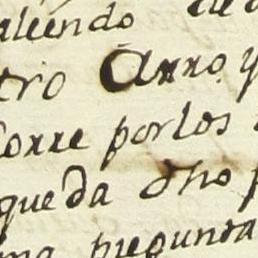 aliendo de
tro Anno y
Corre por los
queda dho p
ma pregunta